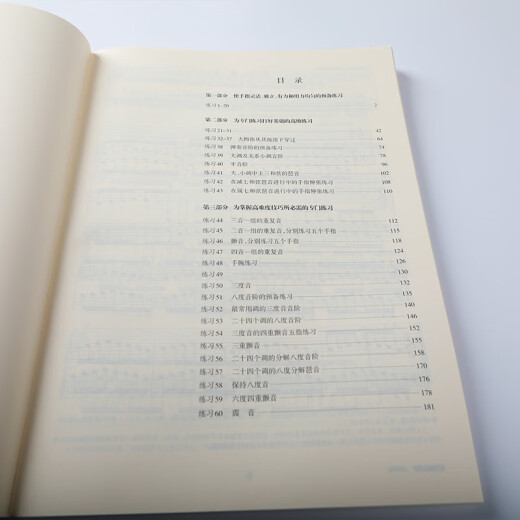 目 录
第一部分 使手指灵活、独立、有力和用力均匀的预备练习
练习1-20 2
第二部分 为专门练习打好基础的高级练习
练习21-31 42
练习32-37 大拇指从其他指下穿过 64
练习38 弹奏音阶的预备练习 74
练习39 大调及关系小调音阶 78
练习40 半音阶 96
练习41 大、小调中主三和弦的琶音 102
练习42 在减七和弦琶音进行中的手指伸张练习 108
练习43 在属七和弦琶音进行中的手指伸张练习 110
第三部分 为掌握高难度技巧所必需的专门练习
练习44 三音一组的重复音 112
练习45 二音一组的重复音,分别练习五个手指 115
练习46 颤音,分别练习五个手指 118
练习47 四音一组的重复音 124
练习48 手腕练习 126
练习49 130
练习50 三度音 132
练习51 八度音阶的预备练习 135
练习52 最常用调的三度音音阶 140
练习53 二十四个调的八度音阶 146
练习54 三度音的四重颤音五指练习 152
练习55 三重颤音 155
练习56 二十四个调的分解八度音阶 158
练习57 二十四个调的八度分解琶音 170
练习58 保持八度音 176
练习59 六度四重颤音 178
练习60 震 音 181